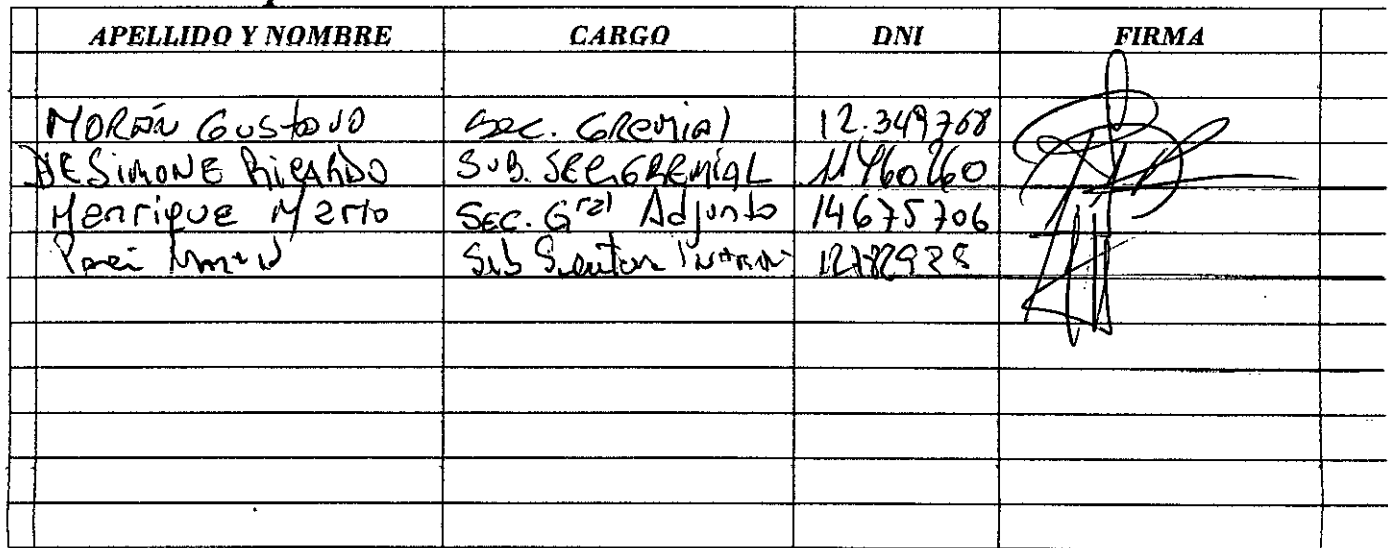 APELLIDO Y NOMBRE CARGO DNI FIRMA
MORÁN GUSTAVO Sec. GREMIAL 12.349768
DESIMONE RICARDO SUB. SEC. GREMIAL 11460260
Henrique Mario SEC. Gral Adjunto 14675706
Sub